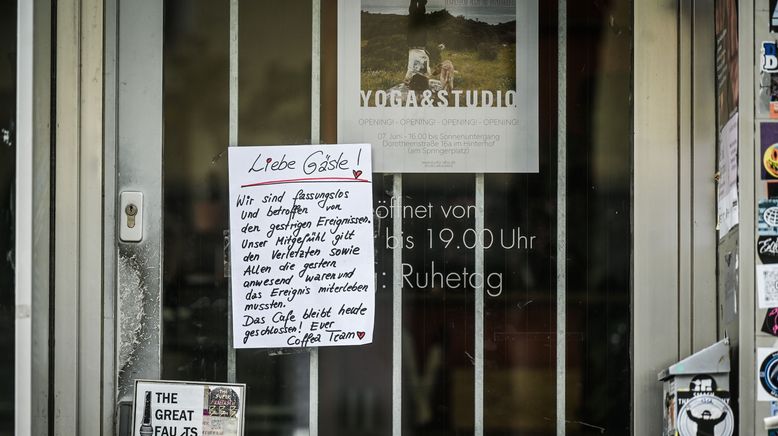 YOGA&STUDIO
OPENING! - OPENING! - OPENING! - OPENING!
07. Juni - 16.00 bis Sonnenuntergang
Dorotheenstraße 16a im Hinterhof
(am Springerplatz)
Liebe Gäste!
Wir sind fassungslos
und betroffen von
den gestrigen Ereignissen.
Unser Mitgefühl gilt
den Verletzten sowie
Allen die gestern
anwesend waren und
das Ereignis miterleben
mussten.
Das Cafe bleibt heute
geschlossen! Euer
Coffea Team
öffnet von
bis 19.00 Uhr
: Ruhetag
THE
GREAT
FAULTS